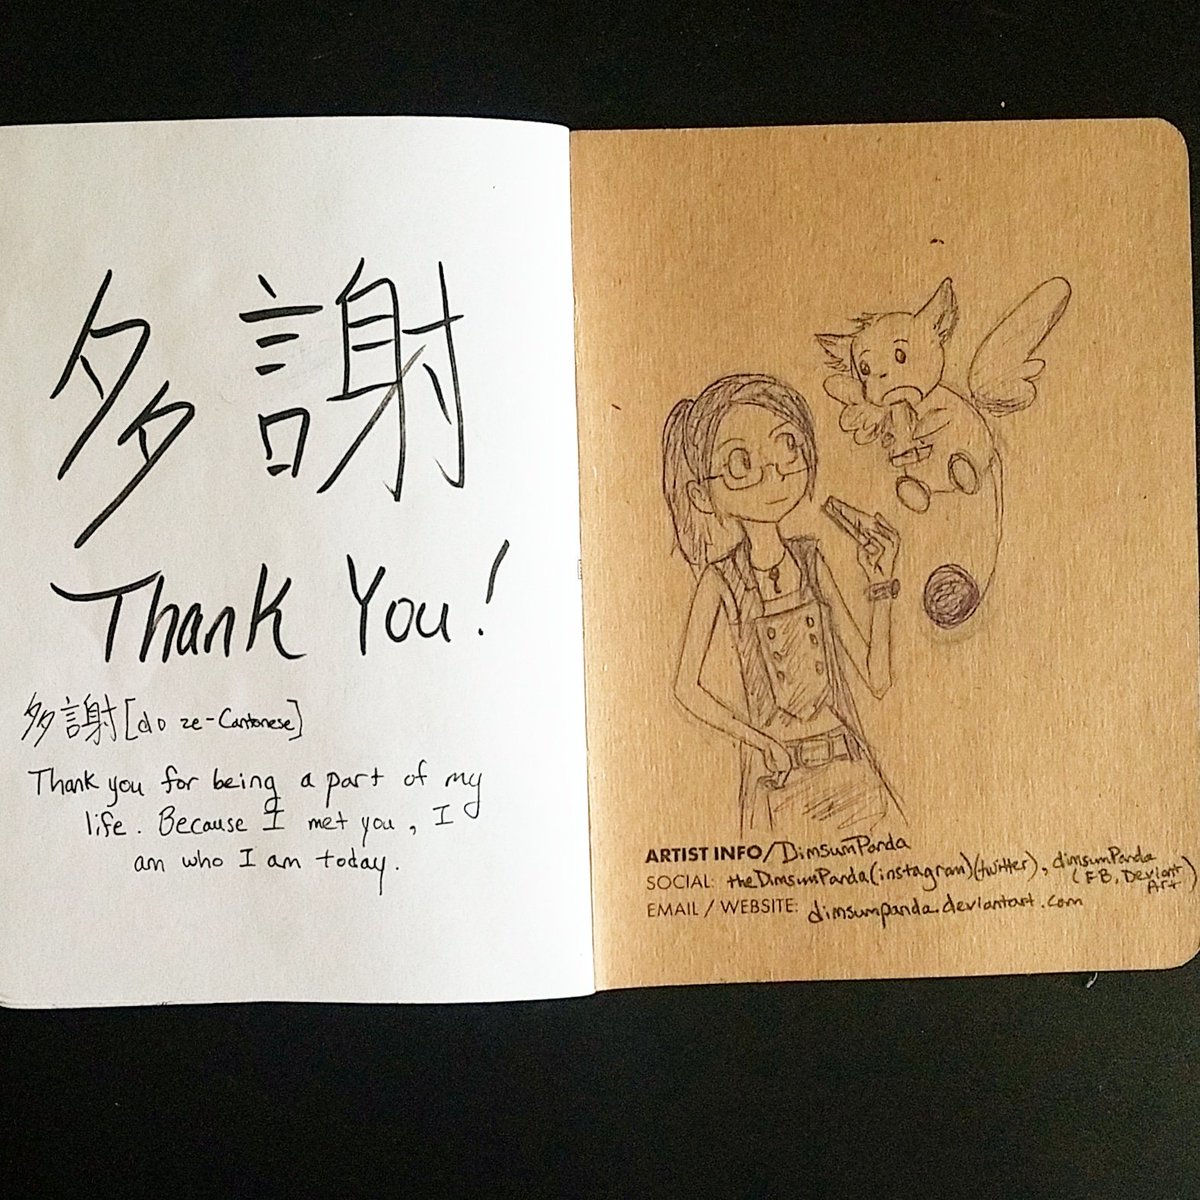 多謝
Thank You!
多謝[do ze-Cantonese]
Thank you for being a part of my
life. Because I met you, I
am who I am today.
ARTIST INFO/DimsumPanda
SOCIAL: theDimsumPanda(instagram)(twitter), dimsumPanda
(FB, Deviant
Art)
EMAIL / WEBSITE: dimsumpanda.deviantart.com